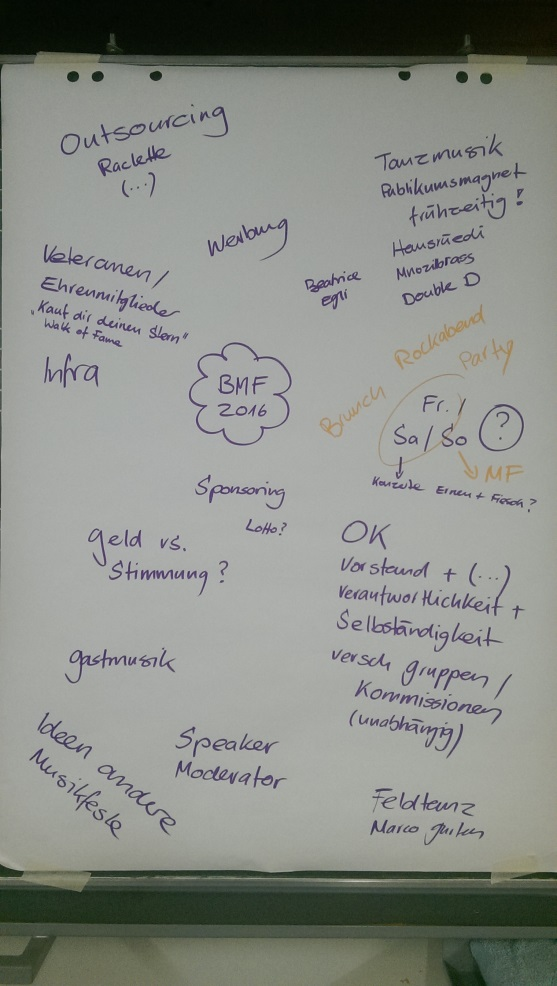 Outsourcing
Raclette
(...)
Tanzmusik
Publikumsmagnet
frühzeitig!
Hansruedi
Mnozilbrass
Double D
Werbung
Beatrice
Egli
Veteranen /
Ehrenmitglieder
"Kauf dir deinen Stern"
Walk of Fame
Infra
BMF
2016
Brunch
Rockabend
Party
Fr. /
Sa / So ?
MF
Konzerte Ernen + Fiesch?
Sponsoring
Lotto?
Geld vs.
Stimmung?
OK
Vorstand + (...)
Verantwortlichkeit +
Selbständigkeit
versch gruppen /
Kommissionen
(unabhängig)
gastmusik
Ideen andere
Musikfeste
Speaker
Moderator
Feldtanz
Marco